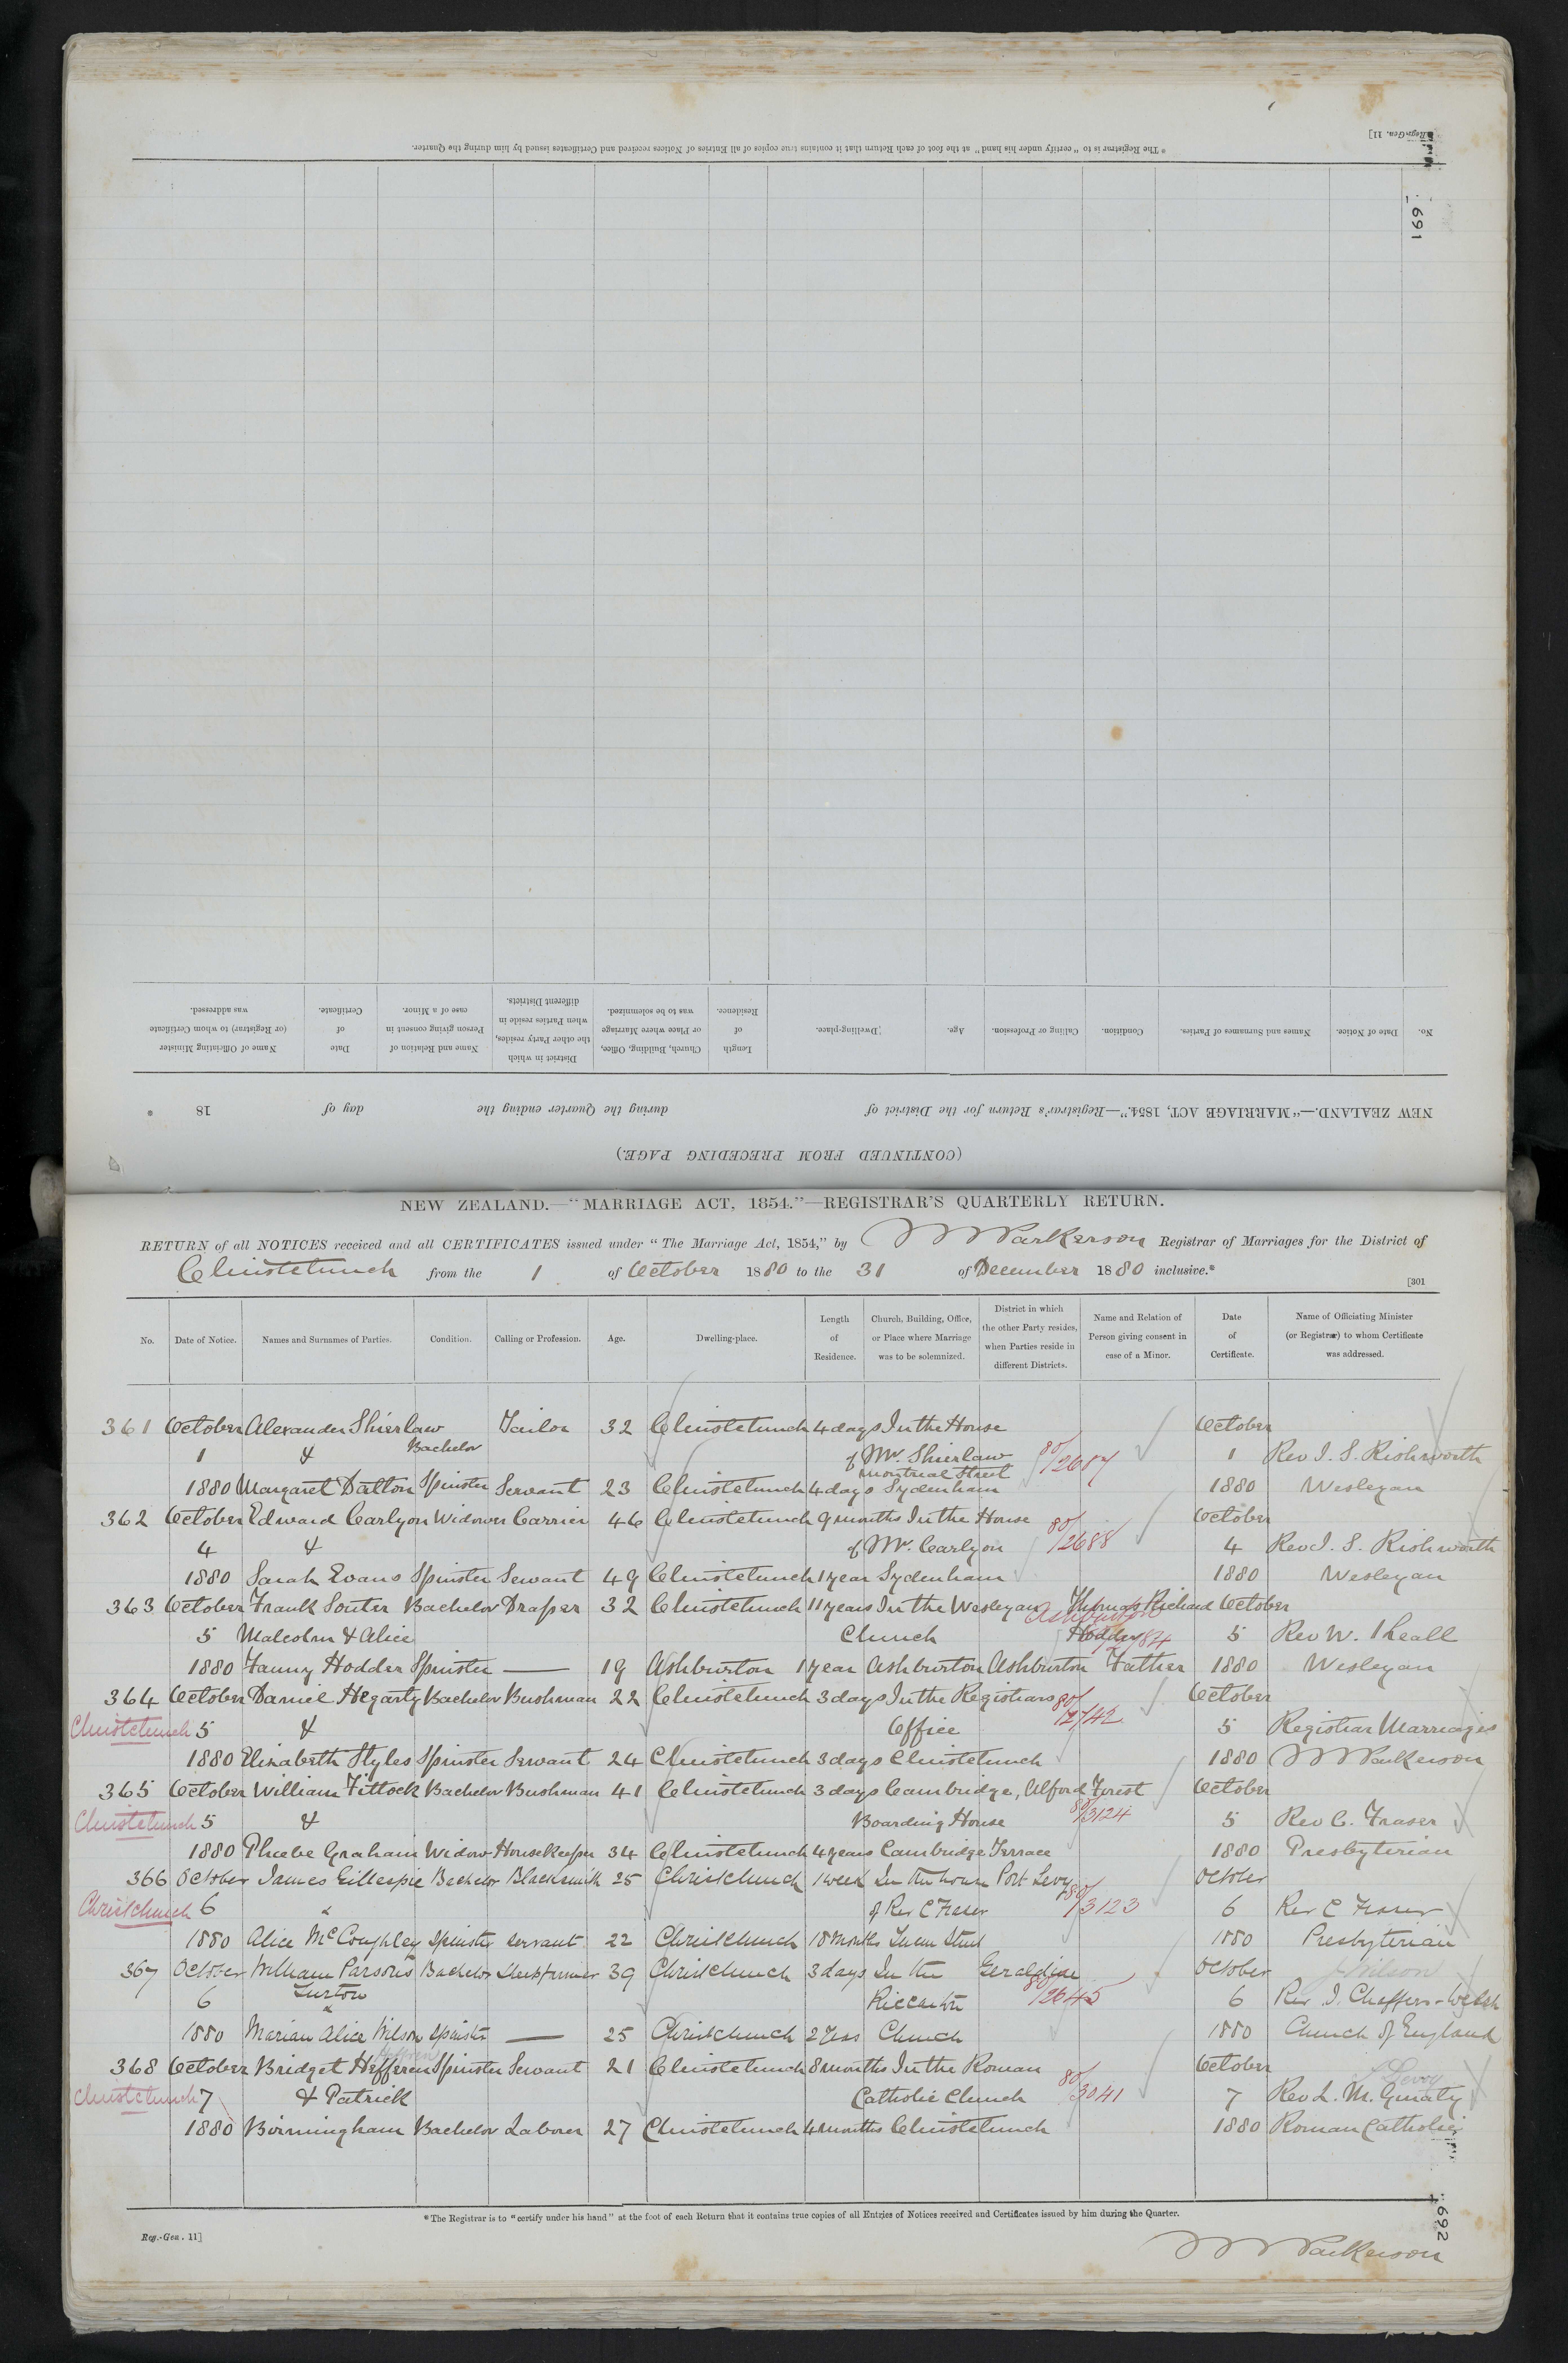 * The Registrar is to "certify under his hand" at the foot of each Return that it contains true copies of all Entries of Notices received and Certificates issued by him during the Quarter.
Reg.-Gen. 11]
691
Name of Officiating Minister (or Registrar) to whom Certificate was addressed.
Date of Certificate.
Name and Relation of Person giving consent in case of a Minor.
District in which the other Party resides, when Parties reside in different Districts.
Church, Building, Office, or Place where Marriage was to be solemnized.
Length of Residence.
Dwelling-place.
Age.
Calling or Profession.
Condition.
Names and Surnames of Parties.
Date of Notice.
No.
NEW ZEALAND.—"MARRIAGE ACT, 1854."—Registrar's Return for the District of during the Quarter ending the day of 18 .
(CONTINUED FROM PRECEDING PAGE.)
NEW ZEALAND.—"MARRIAGE ACT, 1854."—REGISTRAR'S QUARTERLY RETURN.
RETURN of all NOTICES received and all CERTIFICATES issued under "The Marriage Act, 1854," by Parkerson Registrar of Marriages for the District of
Christchurch from the 1 of October 1880 to the 31 of December 1880 inclusive.*
[301
No. Date of Notice. Names and Surnames of Parties. Condition. Calling or Profession. Age. Dwelling-place. Length of Residence. Church, Building, Office, or Place where Marriage was to be solemnized. District in which the other Party resides, when Parties reside in different Districts. Name and Relation of Person giving consent in case of a Minor. Date of Certificate. Name of Officiating Minister (or Registrar) to whom Certificate was addressed.
361 October Alexander Shierlaw Tailor 32 Christchurch 4 days In the House October
1 & Bachelor of Mr. Shierlaw 80/2687 1 Rev I. S. Rishworth
Montreal Street
1880 Margaret Dalton Spinster Servant 23 Christchurch 4 days Sydenham 1880 Wesleyan
362 October Edward Carlyon Widower Carrier 46 Christchurch 9 months In the House October
4 & of Mr. Carlyon 80/2688 4 Rev I. S. Rishworth
1880 Sarah Evans Spinster Servant 49 Christchurch 1 year Sydenham 1880 Wesleyan
363 October Frank Souter Bachelor Draper 32 Christchurch 11 years In the Wesleyan Thomas Richard October
Ashburton
5 Malcolm & Alice Church Hodder 5 Rev W.
1880 Fanny Hodder Spinster — 19 Ashburton 1 year Ashburton Ashburton Father 1880 Wesleyan
364 October Daniel Hegarty Bachelor Bushman 22 Christchurch 3 days In the Registrars October
Christchurch 5 & Office 80/2742 5 Registrar Marriages
1880 Elizabeth Styles Spinster Servant 24 Christchurch 3 days Christchurch 1880 Parkerson
365 October William Tittock Bachelor Bushman 41 Christchurch 3 days Cambridge, Alford Forest October
Christchurch 5 & Boarding House 80/3124 5 Rev C. Fraser
1880 Phoebe Graham Widow Housekeeper 34 Christchurch 4 years Cambridge Terrace 1880 Presbyterian
366 October James Gillespie Bachelor Blacksmith 25 Christchurch 1 week In the house Port Levy October
Christchurch 6 & of Rev C Fraser 80/3123 6 Rev C Fraser
1880 Alice McCoughley Spinster Servant 22 Christchurch 18 Months 1880 Presbyterian
367 October William Parsons Bachelor Sheepfarmer 39 Christchurch 3 days In the Geraldine October J Wilson
6 Turton & Riccarton 80/2645 6 Rev. I. Chaffers-Welsh
1880 Marian Alice Wilson Spinster — 25 Christchurch 2 Church 1880 Church of England
368 October Bridget Hefferen Spinster Servant 21 Christchurch 8 months In the Roman October
Christchurch 7 & Patrick Catholic Church 80/3041 7 Rev L. M. Ginaty
1880 Birmingham Bachelor Laborer 27 Christchurch 4 months Christchurch 1880 Roman Catholic
* The Registrar is to "certify under his hand" at the foot of each Return that it contains true copies of all Entries of Notices received and Certificates issued by him during the Quarter.
Reg.-Gen. 11]
692
Parkerson